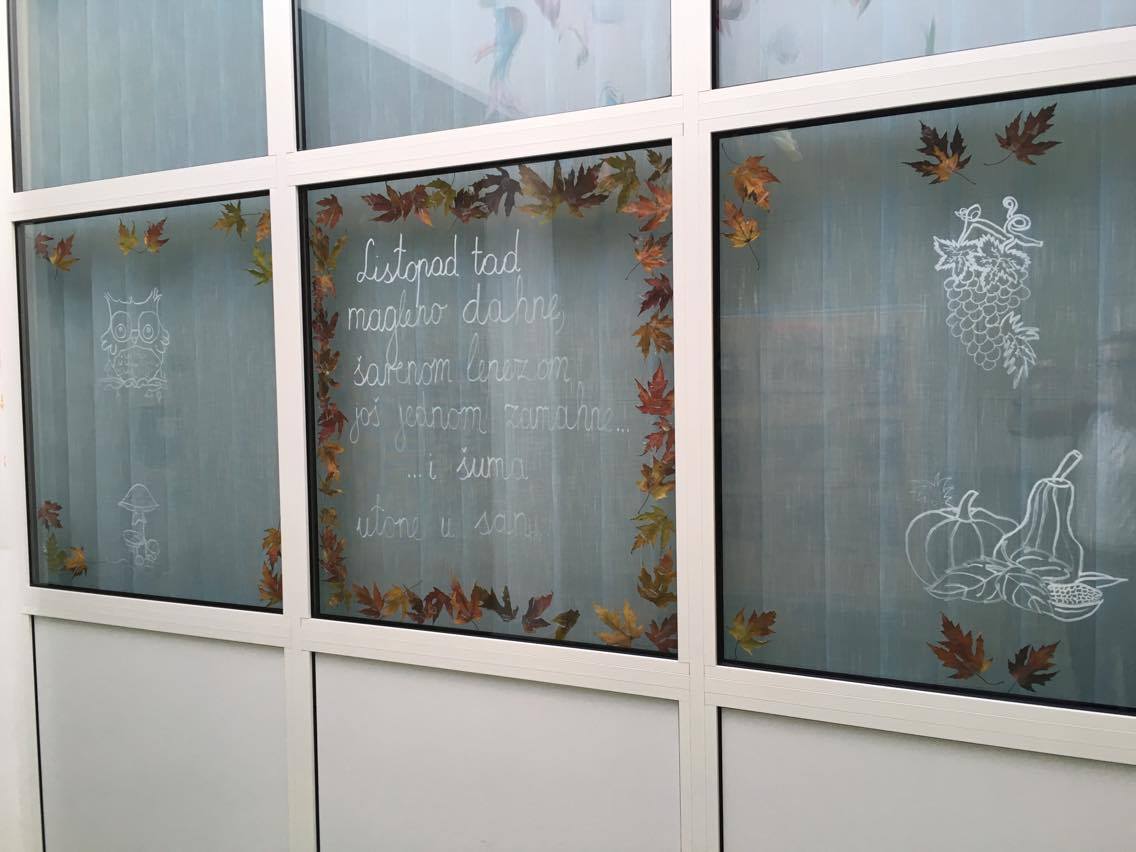 Listopad tad
magleno dahne,
šarenom lepezom
još jednom zamahne...
...i šuma
utone u sanj.